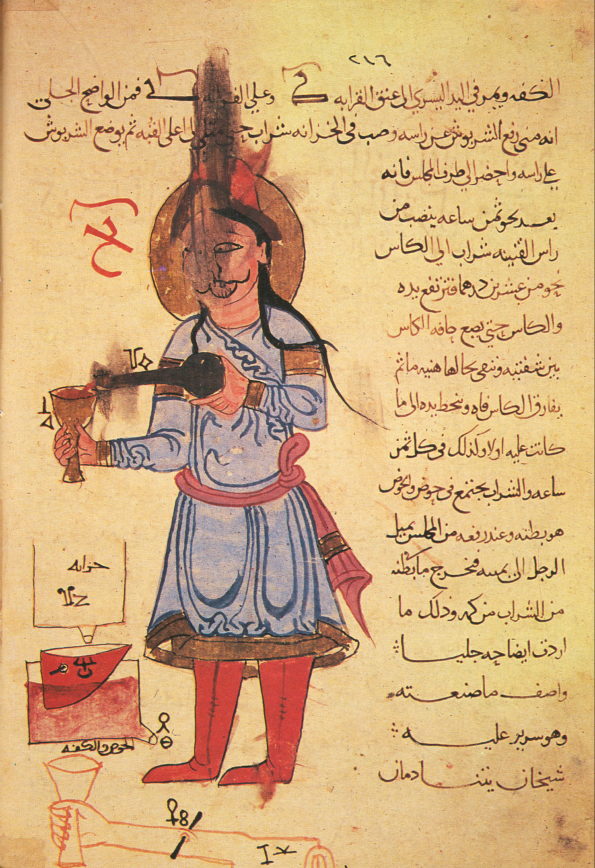 ٢١٦
الكفه ويمر في اليد اليسري الى عنق القرابه وعلي القرابه فمن الواضح الجلي
انه متي رفع الشربوش عن راسه وصب في الخزانه شراب حتي الى اعلى القبه ثم يوضع الشربوش
علي راسه واحضر الى طرف المجلس فانه
يعد نحو ثمن ساعه ينصب من
راس القنينه شراب الى الكاس
نحو من عشرين درهما فترتفع يده
والكاس حتي يضع حافه الكاس
بين شفتيه وتبقى بحالها هنيه ما ثم
يفارق الكاس فاه وتنحط يده الى ما
كانت عليه اولا وكذلك في كل ثمن
ساعه والشراب يجتمع في حوض والحوض
هو بطنه وعند رفعه من المجلس يميل
الرجل الى يمينه فيخرج ما بطنه
من الشراب من كمه وذلك ما
اردت ايضاحه جليا
واصف ما صنعته
وهو سرير عليه
شيخان يتنادمان
خزانه
الحوض والكفه